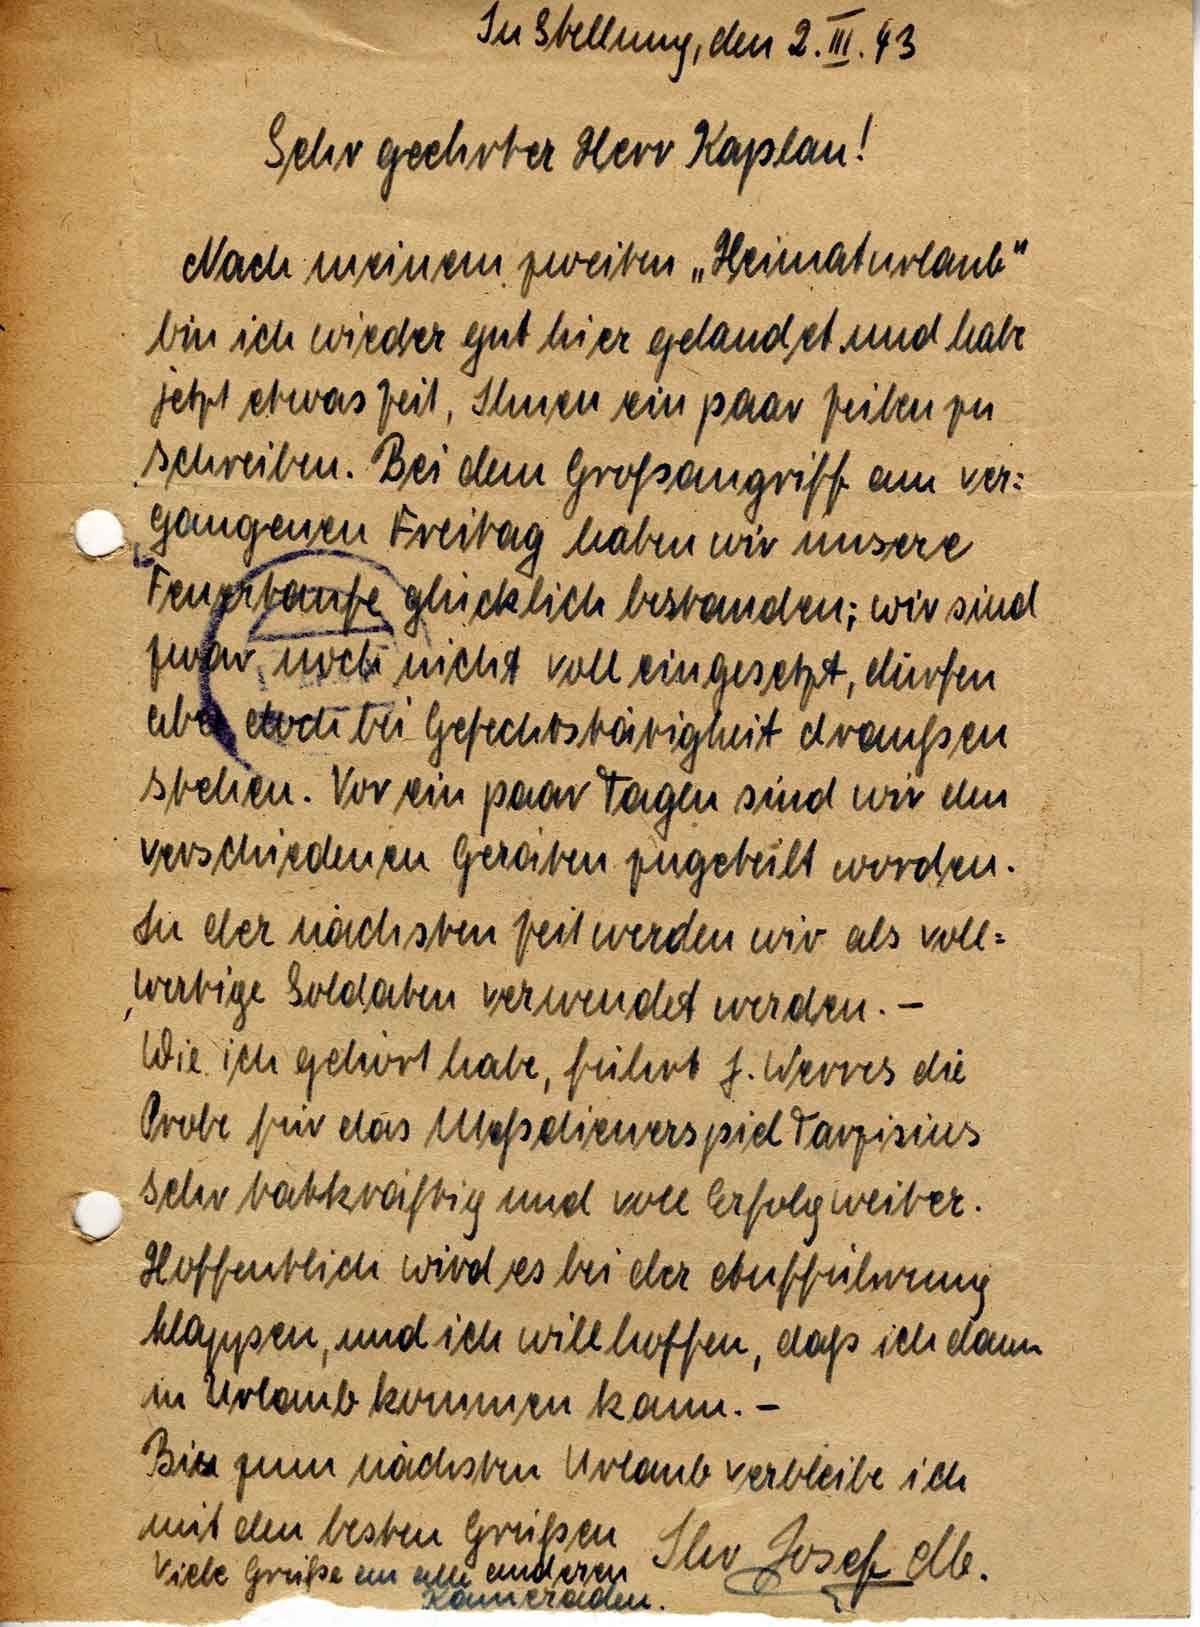 In Stellung, den 2. III. 43
Sehr geehrter Herr Kaplan!
Nach meinem zweiten „Heimaturlaub"
bin ich wieder gut hier gelandet und habe
jetzt etwas Zeit, Ihnen ein paar Zeilen zu
schreiben. Bei dem Großangriff am ver=
gangenen Freitag haben wir unsere
Feuertaufe glücklich bestanden; wir sind
zwar noch nicht voll eingesetzt, dürfen
aber doch bei Gefechtstätigkeit draußen
stehen. Vor ein paar Tagen sind wir den
verschiedenen Geräten zugeteilt worden.
In der nächsten Zeit werden wir als voll=
wertige Soldaten verwendet werden. –
Wie ich gehört habe, führt J. Werres die
Probe für das Meßdienerspiel Tarzisius
sehr tatkräftig und voll Erfolg weiter.
Hoffentlich wird es bei der Aufführung
klappen, und ich will hoffen, daß ich dann
in Urlaub kommen kann. –
Bis zum nächsten Urlaub verbleibe ich
mit den besten Grüßen
Ihr Josef
Viele Grüße an alle anderen
Kameraden.